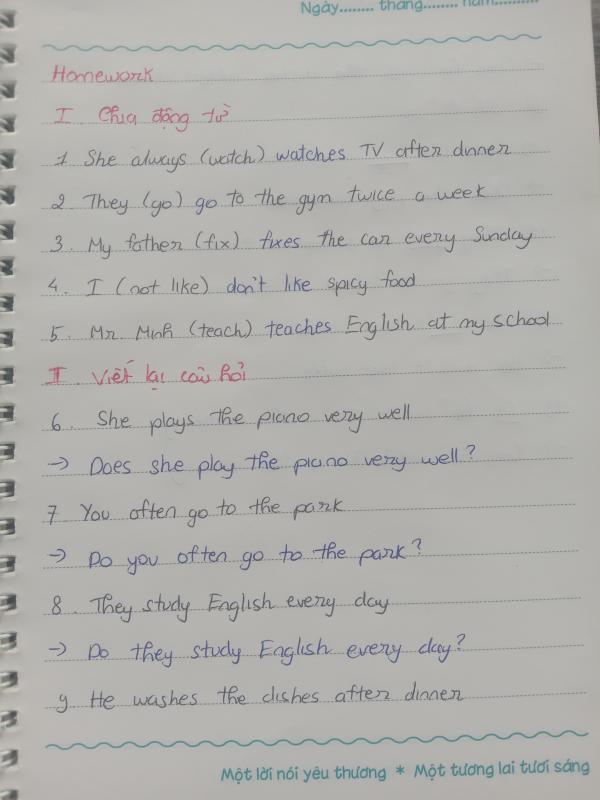 Ngày........ tháng........ năm..........
Homework
I. Chia động từ
1 She always (watch) watches TV after dinner
2 They (go) go to the gym twice a week
3. My father (fix) fixes the car every Sunday
4. I (not like) don't like spicy food
5. Mr Minh (teach) teaches English at my school
II. Viết lại câu hỏi
6. She plays the piano very well
-> Does she play the piano very well?
7 You often go to the park
-> Do you often go to the park?
8. They study English every day
-> Do they study English every day?
9 He washes the dishes after dinner
Một lời nói yêu thương * Một tương lai tươi sáng